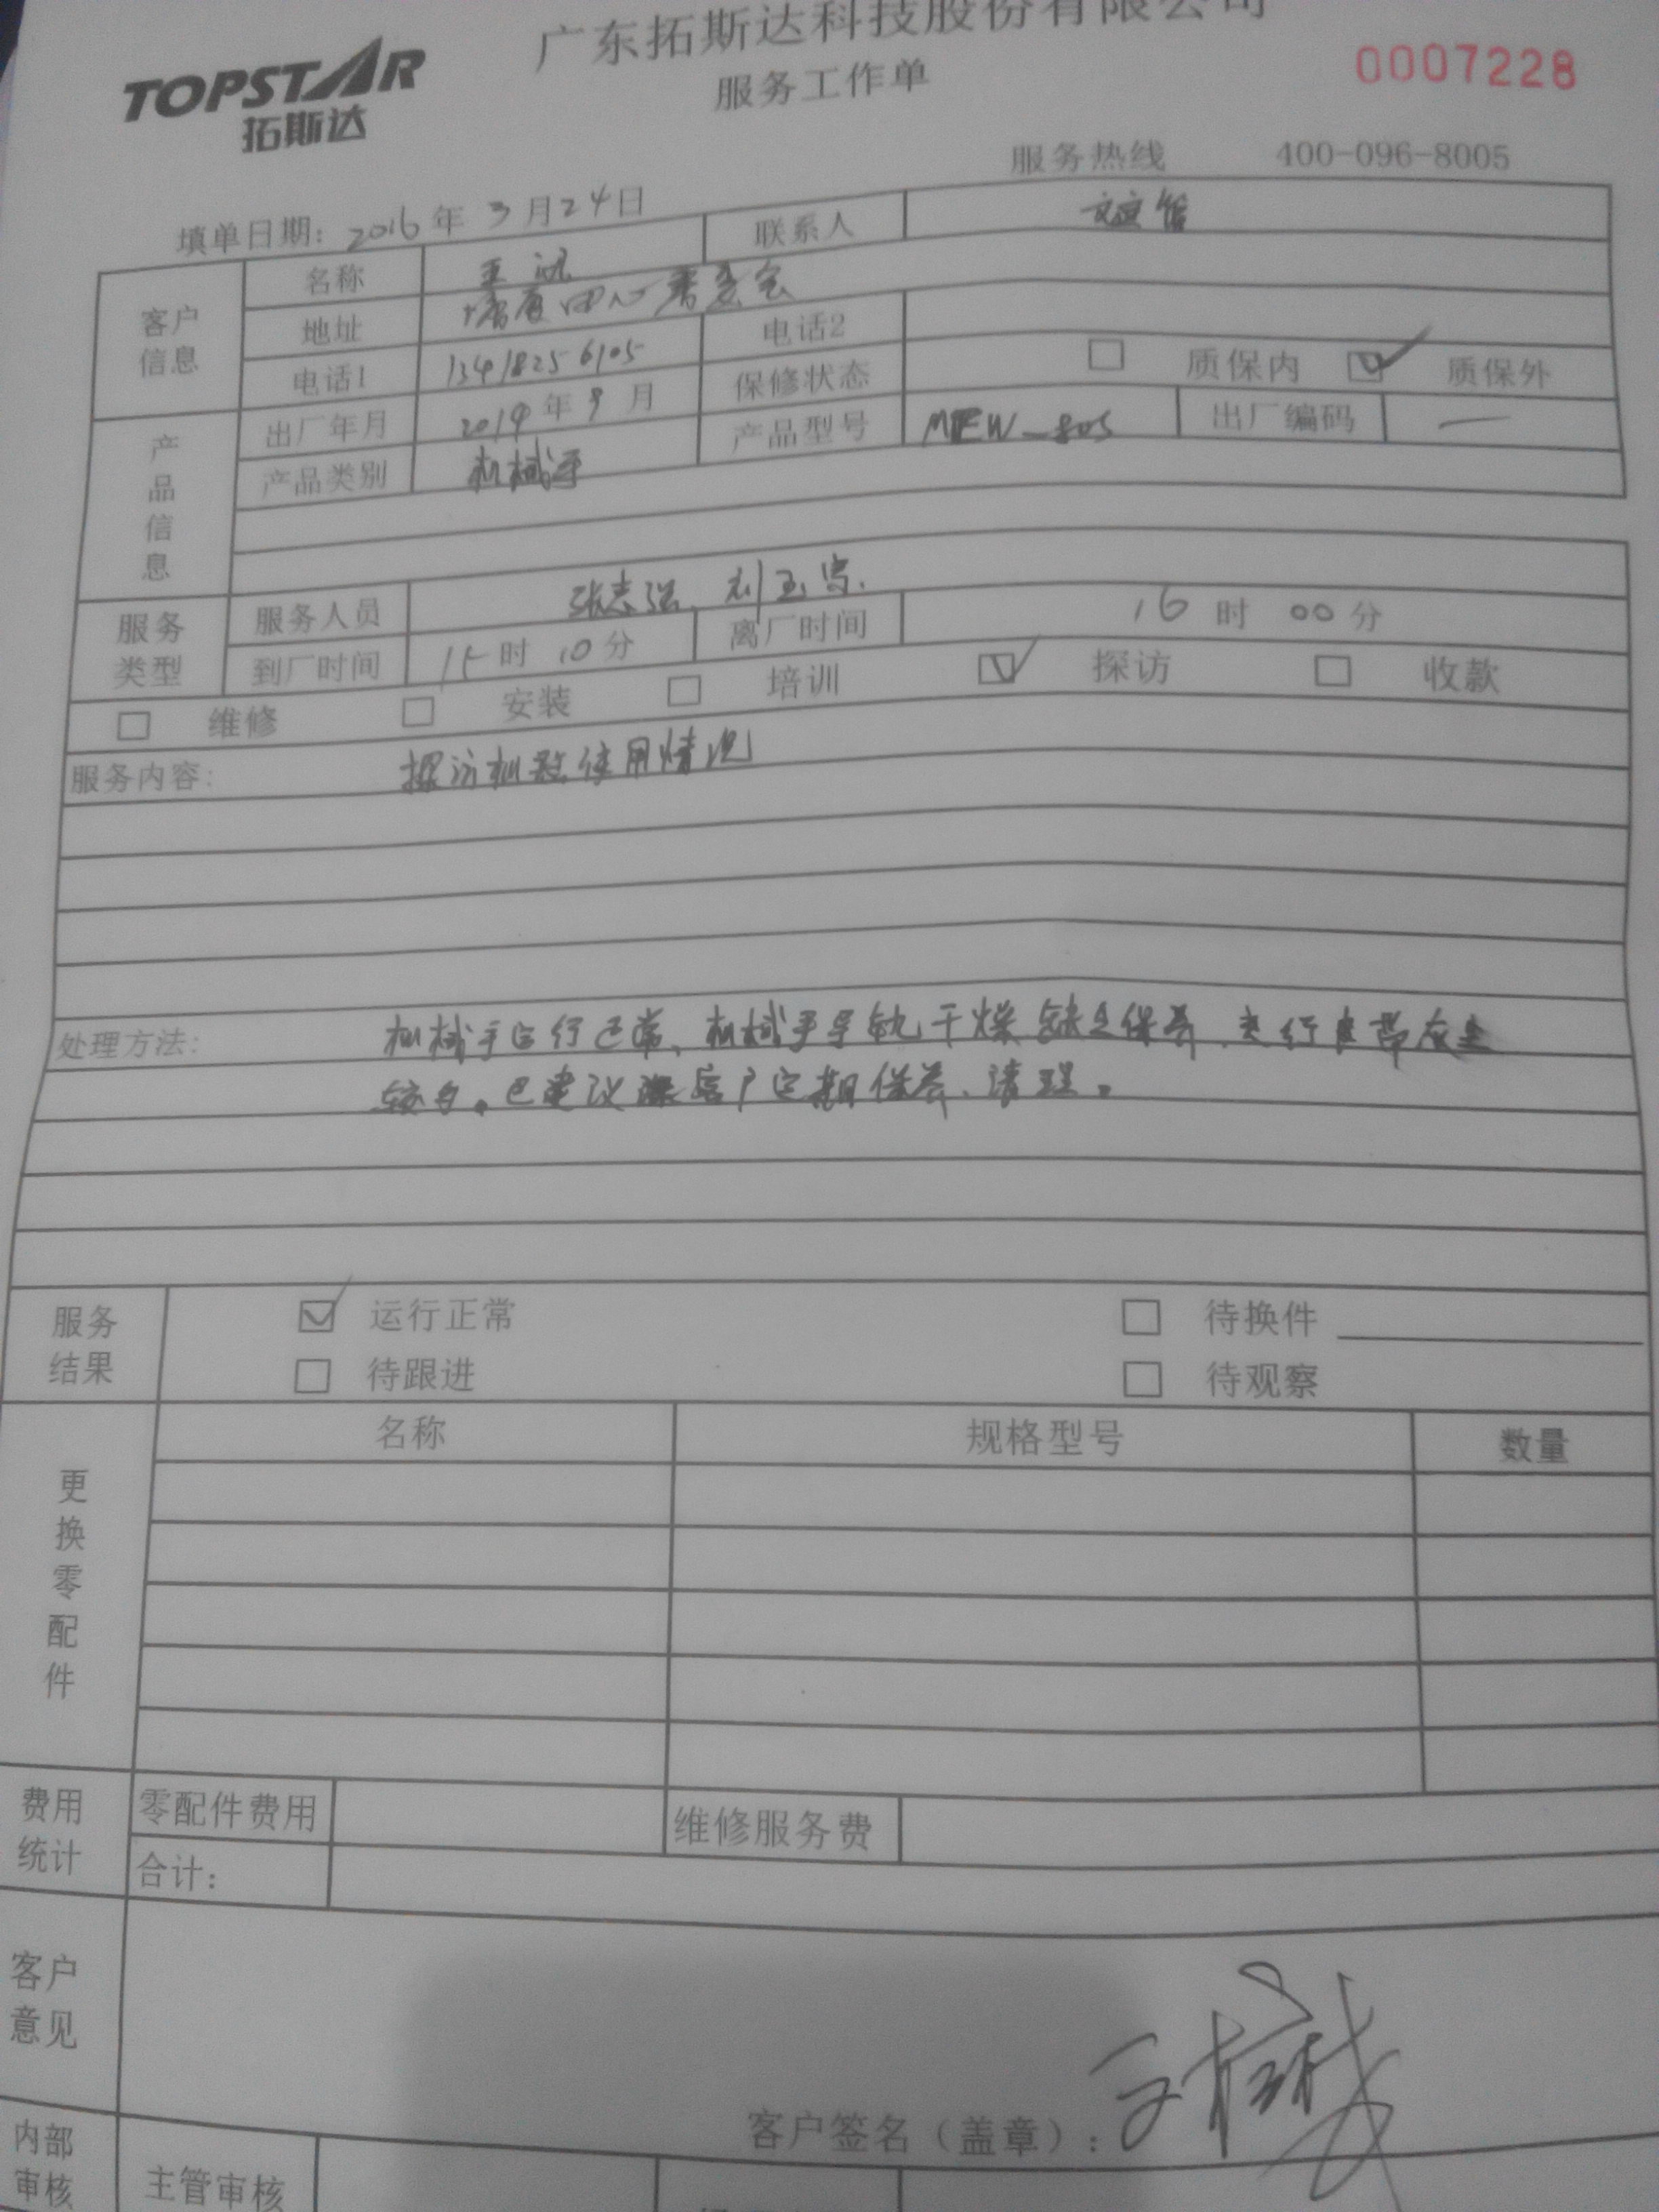 广东拓斯达科技股份有限公司
TOPSTAR
拓斯达
服务工作单
0007228
服务热线 400-096-8005
填单日期: 2016 年 3 月 24 日
客户信息
名称
联系人
地址
电话1 13418256105
电话2
产品信息
出厂年月 2014 年 9 月
保修状态 质保内 质保外
产品类别 机械手
产品型号
出厂编码 —
服务类型
服务人员 张志强、刘玉
到厂时间 15 时 10 分
离厂时间 16 时 00 分
维修 安装 培训 探访 收款
服务内容: 探访机器使用情况
处理方法: 机械手运行正常、机械手导轨干燥缺乏保养、 行 带灰尘
较多。已建议 客户定期保养、清理。
服务结果
运行正常 待换件
待跟进 待观察
更换零配件
名称 规格型号 数量
费用统计
零配件费用 维修服务费
合计:
客户意见
客户签名(盖章):
内部审核
主管审核